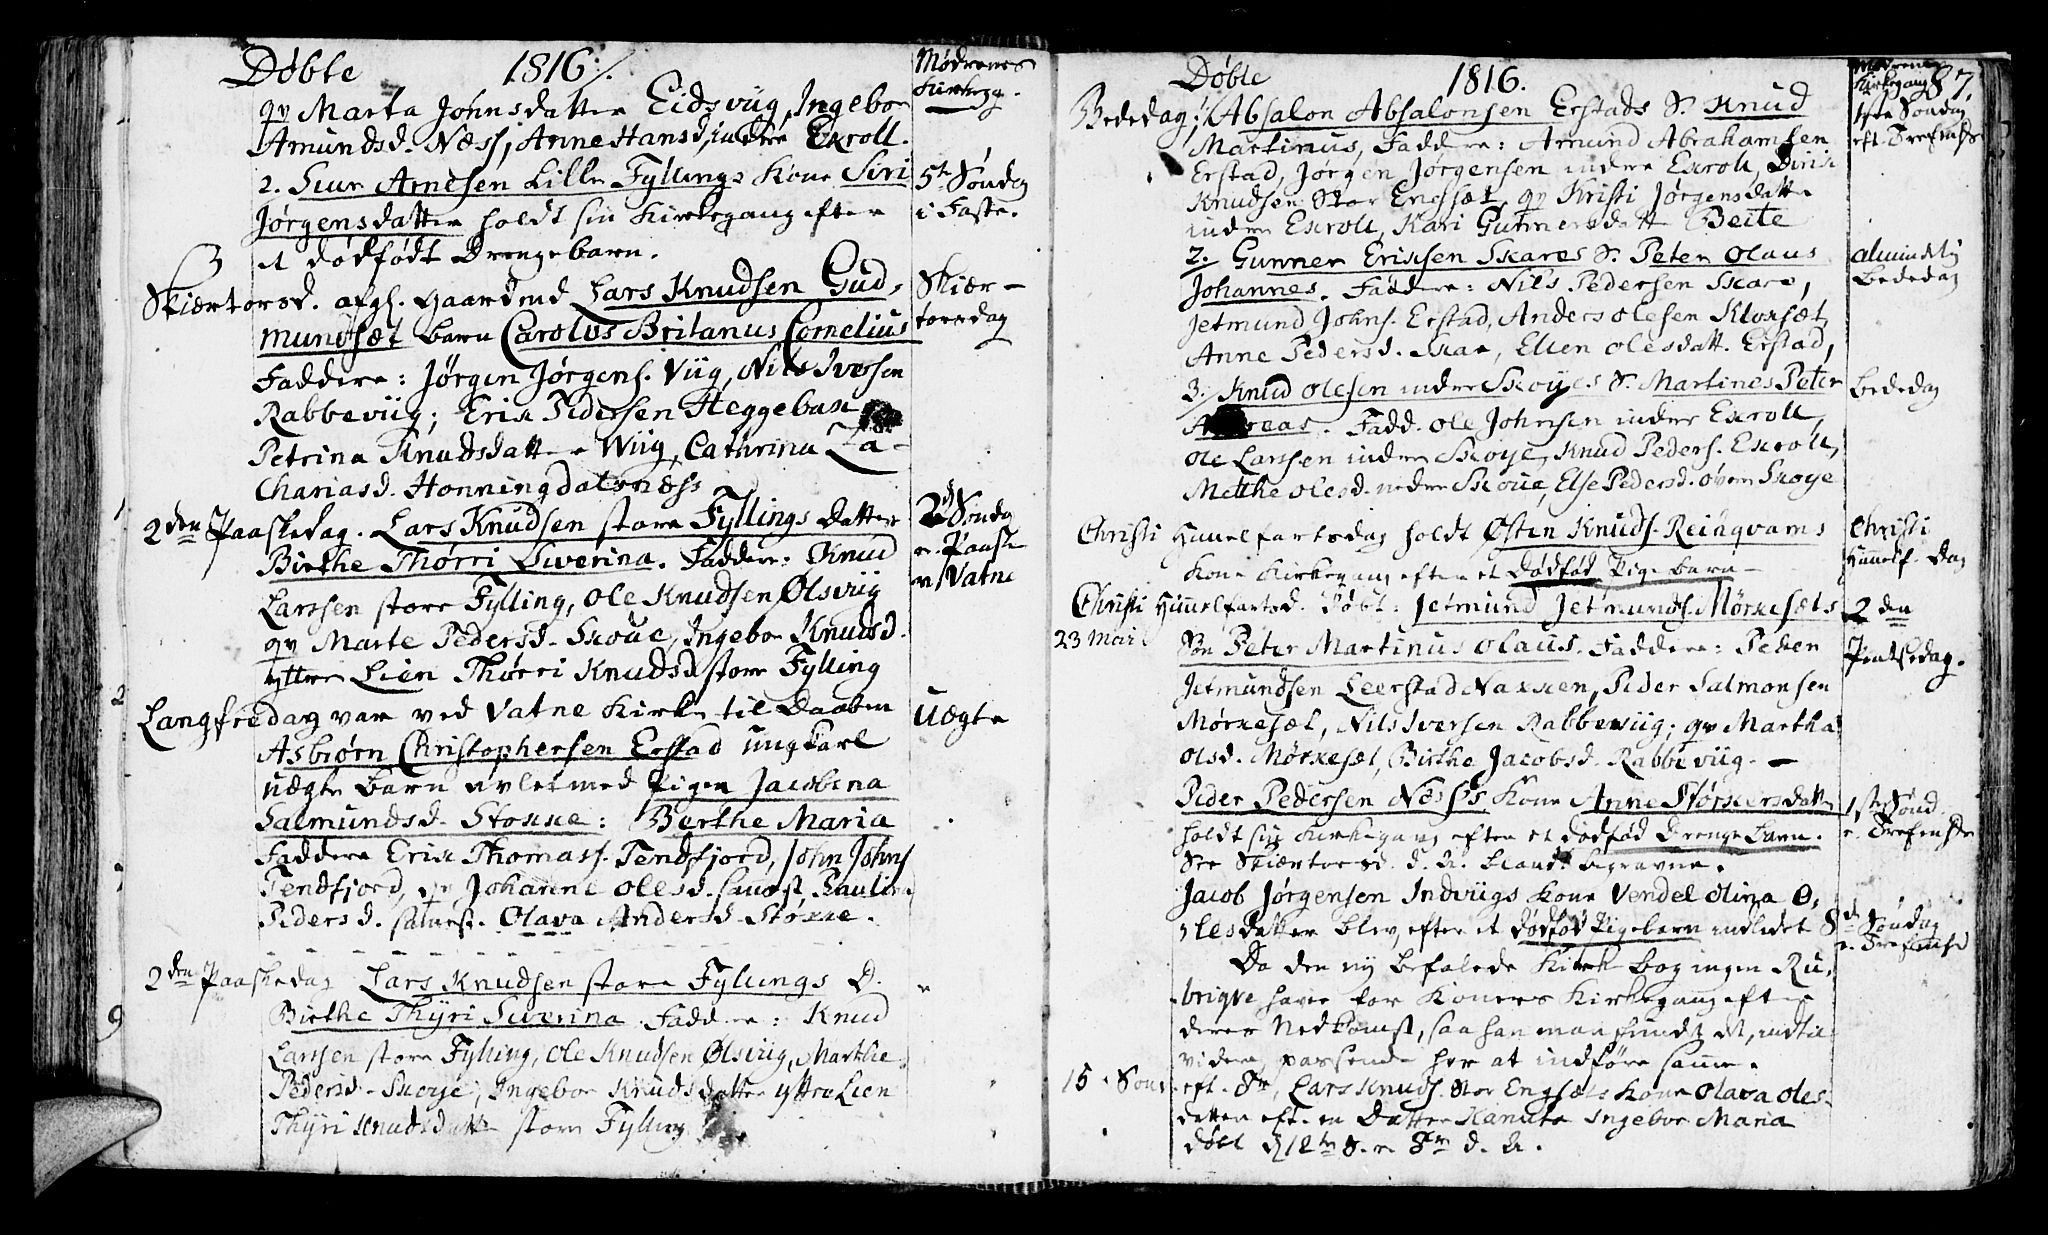 Døbte 1816/.
Mødrenes
Kirkeg.
qv Marta Johnsdatter Eidsviig, Ingebor
Amundsd. Næss, Anne Hansd, indre Exroll.
2. Siur Arnesen Lille Fyllings Kone Siri
Jørgensdatter holdt sin Kirkegang efter
et dødfødt Drengebarn.
5te Søndag
i Faste.
Skiærtorsd. afgl. Gaardmd Lars Knudsen Gud-
mundsæt barn Carolus Britanus Cornelius
Faddere: Jørgen Jørgens. Viig, Nils Iversen
Rabbeviig; Erik Pedersen Heggebak
Petrina Knudsdatter Wiig, Cathrina Za-
chariasd. Honningdalsnæss
Skiær-
torsdag
2den Paaskedag. Lars Knudsen store Fyllings Datter
Birthe Thørri Siverina. Faddere: Knud
Larssen store Fylling, Ole Knudsen Ølsviig
qv Marte Pedersd. Skoue, Ingebor Knudsd.
yttre Lien Thørri Knudsd store Fylling
2d Søndag
e. Paaske
v/Vatne
Langfredag var ved Vatne Kirke til Daaben
Asbiørn Christophersen Erstad ungkarl
uægte Barn avlet med Pigen Jacobina
Salmundsd. Stokke: Berthe Maria
Faddere Erik Thomass. Tendfjord, John Johns
Tendfjord, qv Johanne Olesd. samst, Paulin
Pedersd. samst. Olava Andersd Stokke.
Uægte
2den Paaskedag Lars Knudsen store Fyllings D.
Birthe Thÿri Siverina. Faddere: Knud
Larssen store Fylling, Ole Knudsen Ølsviig, Marthe
Pedersd. Skoye, Ingebor Knudsdatter yttre Lien
Thÿri Knudsdatter store Fylling
Døbte 1816.
Mødrenes
Kirkegang
87.
Bededag: 1/ Absalon Absalonsen Erstads S. Knud
Martinus, Faddere: Amund Abrahamsen
Erstad, Jørgen Jørgensen indre Exroll, Dirik
Knudsen Stor Engsæt, qv Kristi Jørgensdatter
indre Exroll, Kari Gunnersdatt Beite
1ste Søndag
eft. Trefoldh
2. Gunner Eriksen Skares S. Peter Olaus
Johannes. Faddere: Nils Pedersen Skare,
Jetmund Johns. Erstad, Anders Olesen Kloxsæt,
Anne Pedersd. Skar, Ellen Olesdatt. Erstad,
almindelig
Bededag
3. Knud Olesen indre Skoyes S. Martines Peter
Andreas. Fadd. Ole Johnsen indre Exroll,
Ole Larssen indre Skoye, Knud Peders. Exroll,
Methe Olesd. nedre Skoue, Else Pedersd. øvre Skoye
Bededag
Christi Himelfartsdag holdt Østen Knuds. Reingvams
Kone Kirkegang efter et Dødfød Pigebarn
Christi
Himelf. Dag
Christi Himelfartsd. Døbt: Jetmund Jetmunds. Mørkesæts
23 Mai
Søn Peter Martinus Olaus. Faddere: Peder
Jetmundsen Leerstad Nakken, Peder Salmonsen
Mørkesæt, Nils Iversen Rabbeviig; qv Martha
Olsd. Mørkesæt, Birthe Jacobsd. Rabbeviig.
2den
Pintsedag.
Peder Pedersen Næss's Kone Anne Størkersdatter
holdt sin Kirkegang efter et dødfød Drenge Barn.
See Skiærtorsd. d. A. blandt begravne.
1ste Sønd.
e. Trefoldh
Jacob Jørgensen Indviigs Kone Vendel Olina O-
lesdatter blev, efter et Dødfød Pigebarn indledet
8d Søndag
e. Trefoldh
Da den nÿ befalede Kirkebog ingen Ru-
brique haver for Koners Kirkegang efter
deres Nedkomst, saa har man fundet det, indtil
videre, passende her at indføre samme.
15. Sønd eft. Tr, Lars Knuds. Stor Engsæts Kone Olava Oles-
datter eft. en Datter Hanuta Ingebor Maria
døbt d 12te S. e. Tr. d. A.